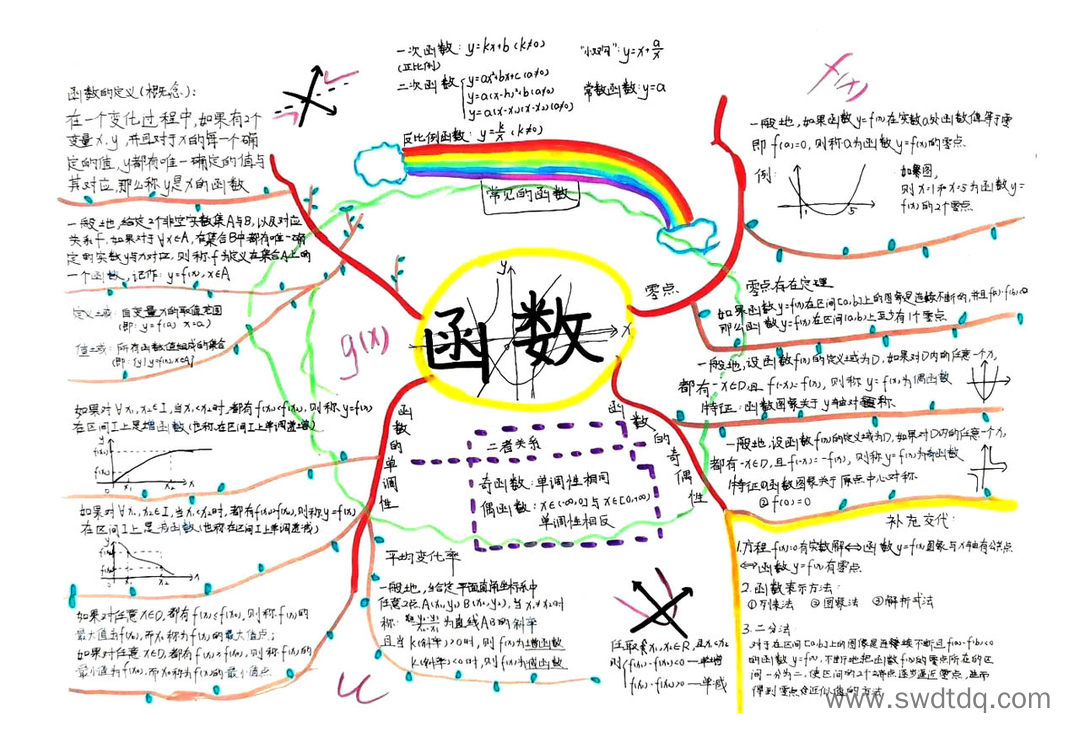 函数
常见的函数
一次函数：y=kx+b(k≠0)
(正比例)
二次函数
y=ax²+bx+c(a≠0)
y=a(x-h)²+b(a≠0)
y=a(x-x₁)(x-x₂)(a≠0)
反比例函数：y=k/x(k≠0)
y=x+a/x
常数函数：y=a
f(x)
g(x)
函数的定义(概念)：
在一个变化过程中，如果有2个
变量x，y，并且对于x的每一个确
定的值，y都有唯一确定的值与
其对应，那么称y是x的函数
一般地，给定2个非空实数集A与B，以及对应
关系f，如果对于∀x∈A，在集合B中都有唯一确
定的实数y与x对应，则称f为定义在集合A上的
一个函数，记作：y=f(x)，x∈A
定义域：自变量x的取值范围
值域：所有函数值组成的集合
函数的单调性
如果对∀x₁，x₂∈I，当x₁<x₂时，都有f(x₁)<f(x₂)，则称y=f(x)
在区间I上是增函数(也称在区间I上单调递增)
如果对∀x₁，x₂∈I，当x₁<x₂时，都有f(x₁)>f(x₂)，则称y=f(x)
在区间I上是减函数(也称在区间I上单调递减)
如果对任意x∈D，都有f(x)≤f(x₀)，则称f(x)的
最大值为f(x₀)，而x₀称为f(x)的最大值点；
如果对任意x∈D，都有f(x)≥f(x₀)，则称f(x)的
最小值为f(x₀)，而x₀称为f(x)的最小值点
平均变化率
一般地，给定平面直角坐标系中
任意2点A(x₁,y₁) B(x₂,y₂)，当x₁≠x₂时
称：y₂-y₁/x₂-x₁为直线AB的斜率
且当k(斜率)>0时，则f(x)为增函数
k(斜率)<0时，则f(x)为
二者关系
奇函数：单调性相同
偶函数：x∈(-∞,0]与x∈[0,+∞)
单调性相反
零点
一般地，如果函数y=f(x)在实数a处函数值等于零
即f(a)=0，则称a为函数y=f(x)的零点
例：
1
5
如图
则x=1和x=5为函数y=
f(x)的2个零点
零点存在定理
如果函数y=f(x)在区间[a,b]上的图象是连续不断的，并且f(a)·f(b)<0
那么函数y=f(x)在区间(a,b)上至少有1个零点
函数的奇偶性
一般地，设函数f(x)的定义域为D，如果对D内的任意一个x，
都有-x∈D，且f(-x)=f(x)，则称y=f(x)为偶函数
特征：函数图象关于y轴对称
一般地，设函数f(x)的定义域为D，如果对D内的任意一个x，
都有-x∈D，且f(-x)=-f(x)，则称y=f(x)为奇函数
特征①函数图象关于原点中心对称
②f(0)=0
补充交代：
1.方程f(x)=0有实数解⇔函数y=f(x)图象与x轴有公共点
⇔函数y=f(x)有零点
2.函数表示方法：
①列表法 ②图象法 ③解析式法
3.二分法
对于在区间[a,b]上的图象是连续不断且f(a)·f(b)<0
的函数y=f(x)，不断地把函数f(x)的零点所在的区
间一分为二，使区间的2个端点逐步逼近零点，进而
得到零点近似值的方法
任取x₁，x₂∈R，且x₁<x₂
则
f(x₁)-f(x₂)<0 — 单增
f(x₁)-f(x₂)>0 — 单减
www.swdtdq.com